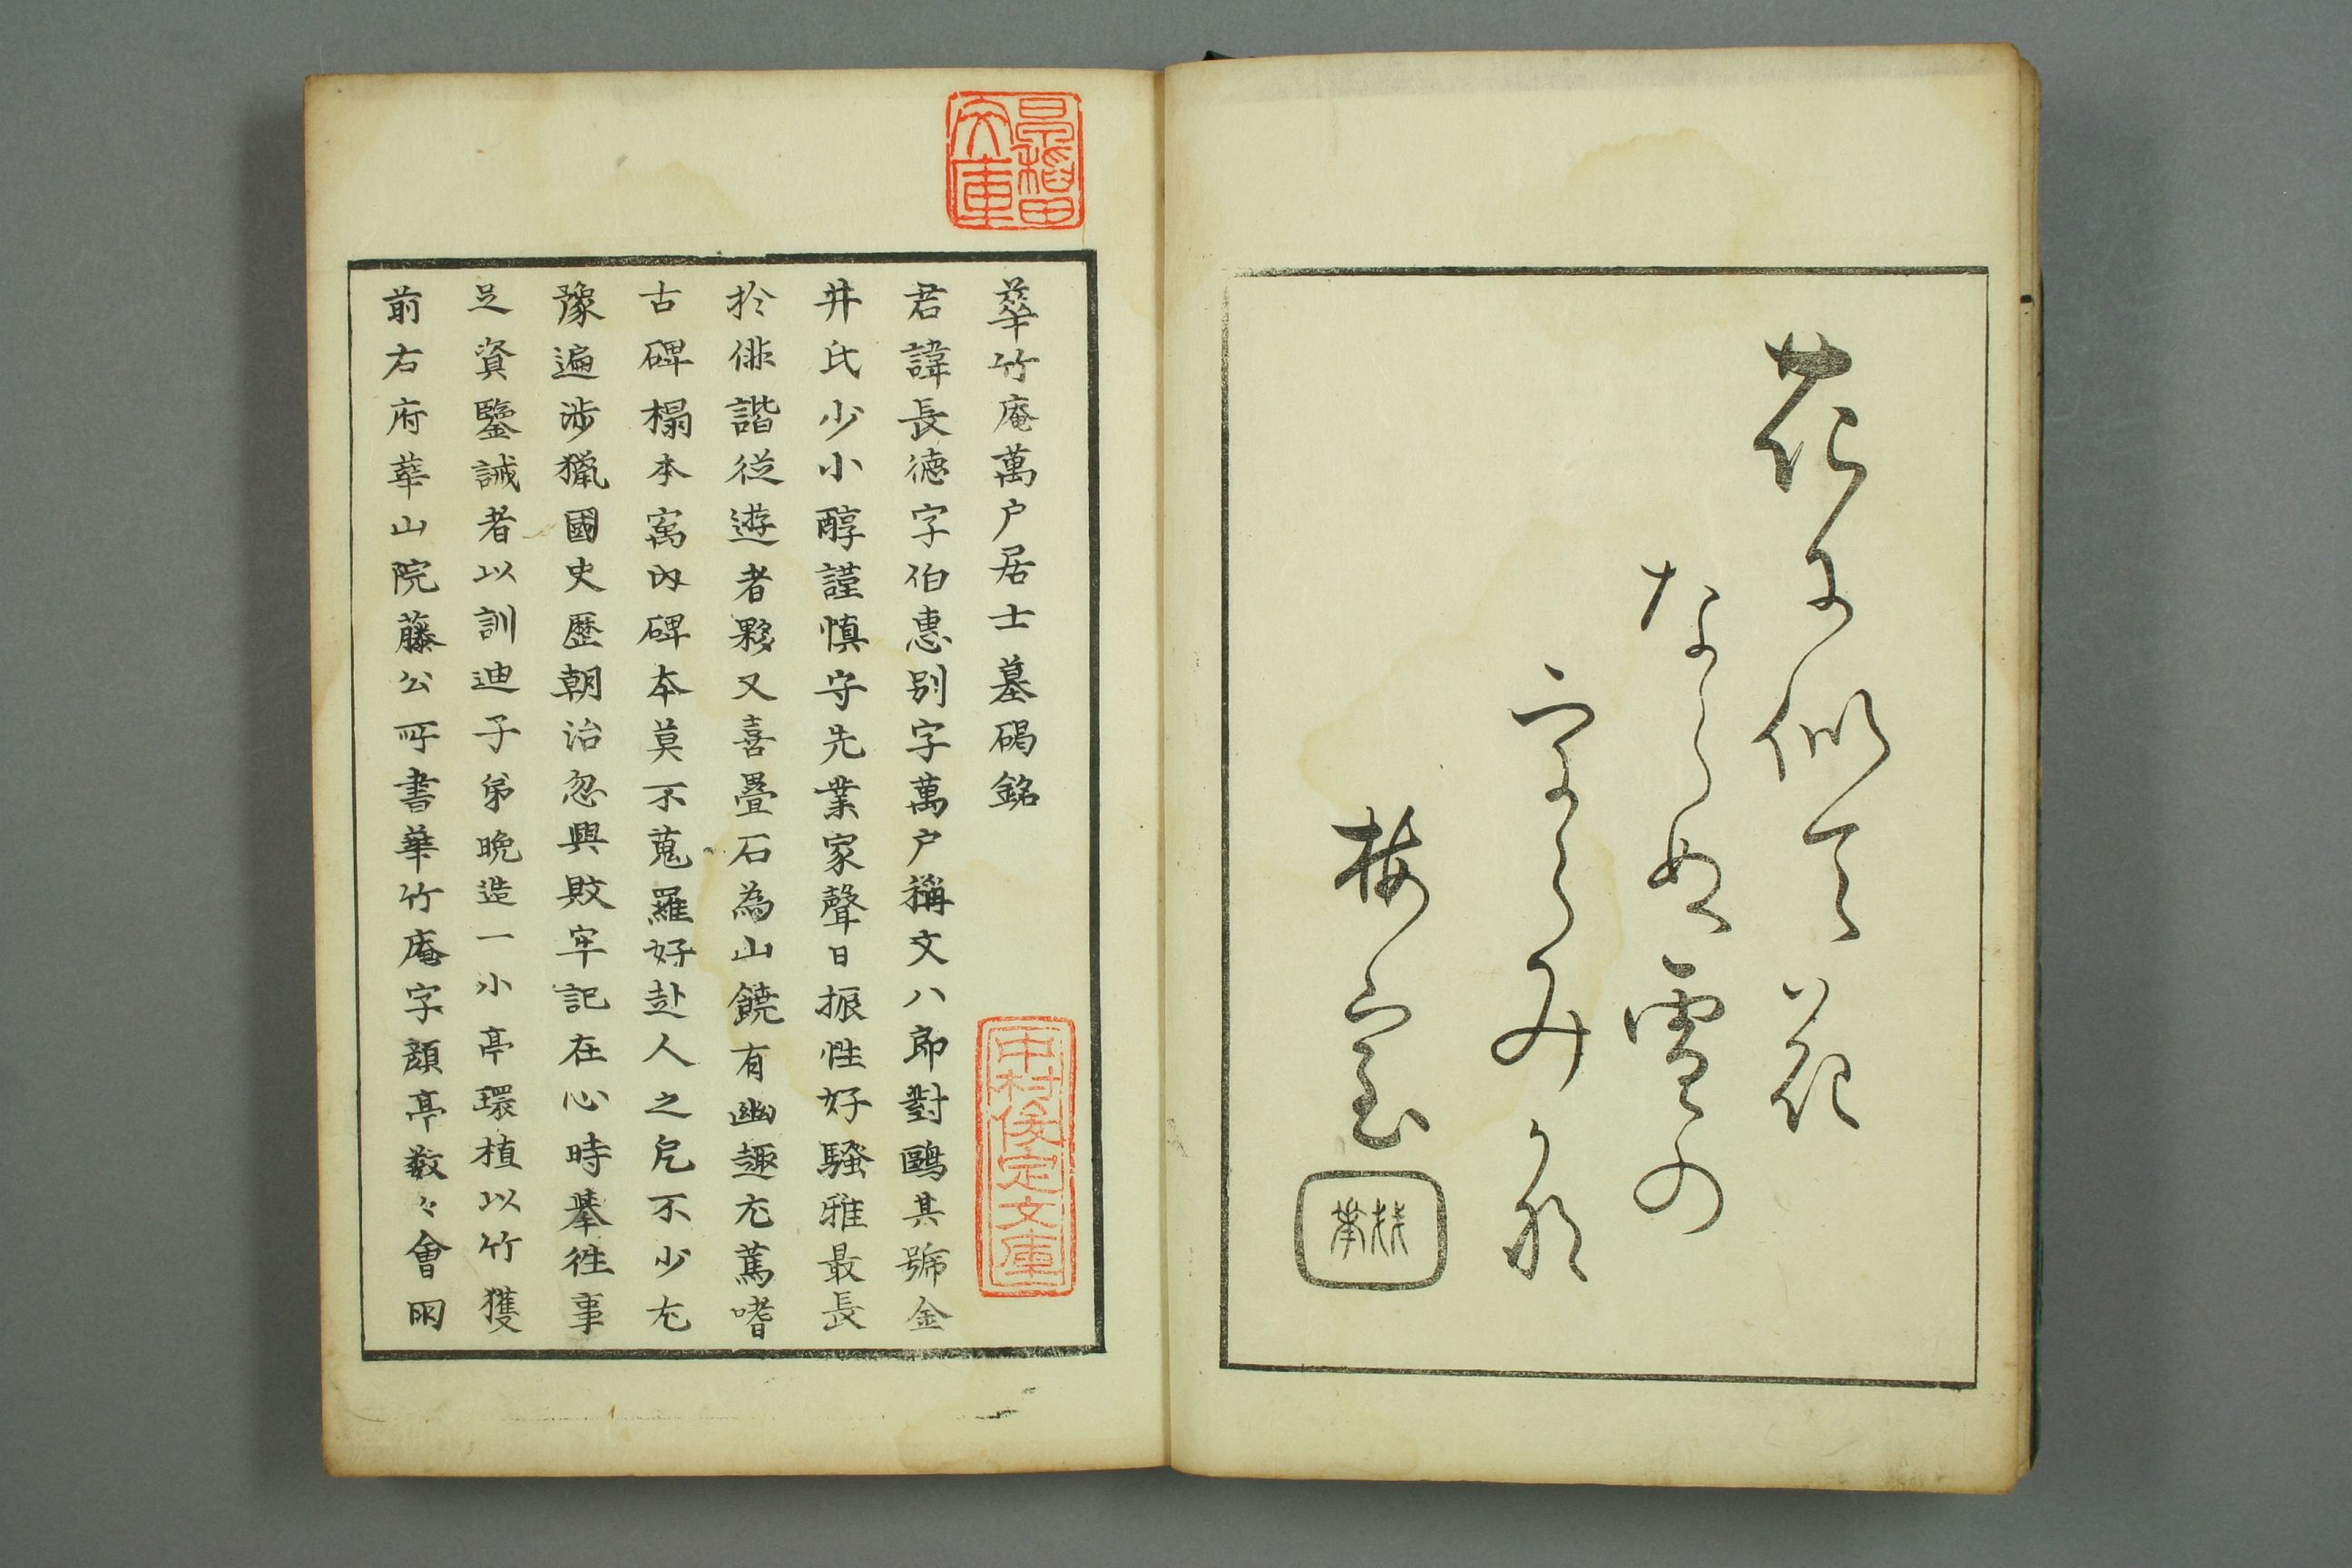 花に似て花
ならぬ雪の
さくらみかな
梅室
華竹庵萬戶居士墓碣銘
君諱長德字伯惠別字萬戶稱文八郎對鷗其號金
井氏少小醇謹慎守先業家聲日振性好騷雅最長
於俳諧從遊者夥又喜疊石為山饒有幽趣尤篤嗜
古碑榻本寓內碑本莫不蒐羅好赴人之危不少尤
豫遍涉獵國史歷朝治忽興敗牢記在心時舉徃事
足資鑒誡者以訓迪子弟晚造一小亭環植以竹獲
前右府華山院藤公所書華竹庵字顏亭數々會朋
早稲田文庫
中村俊定文庫